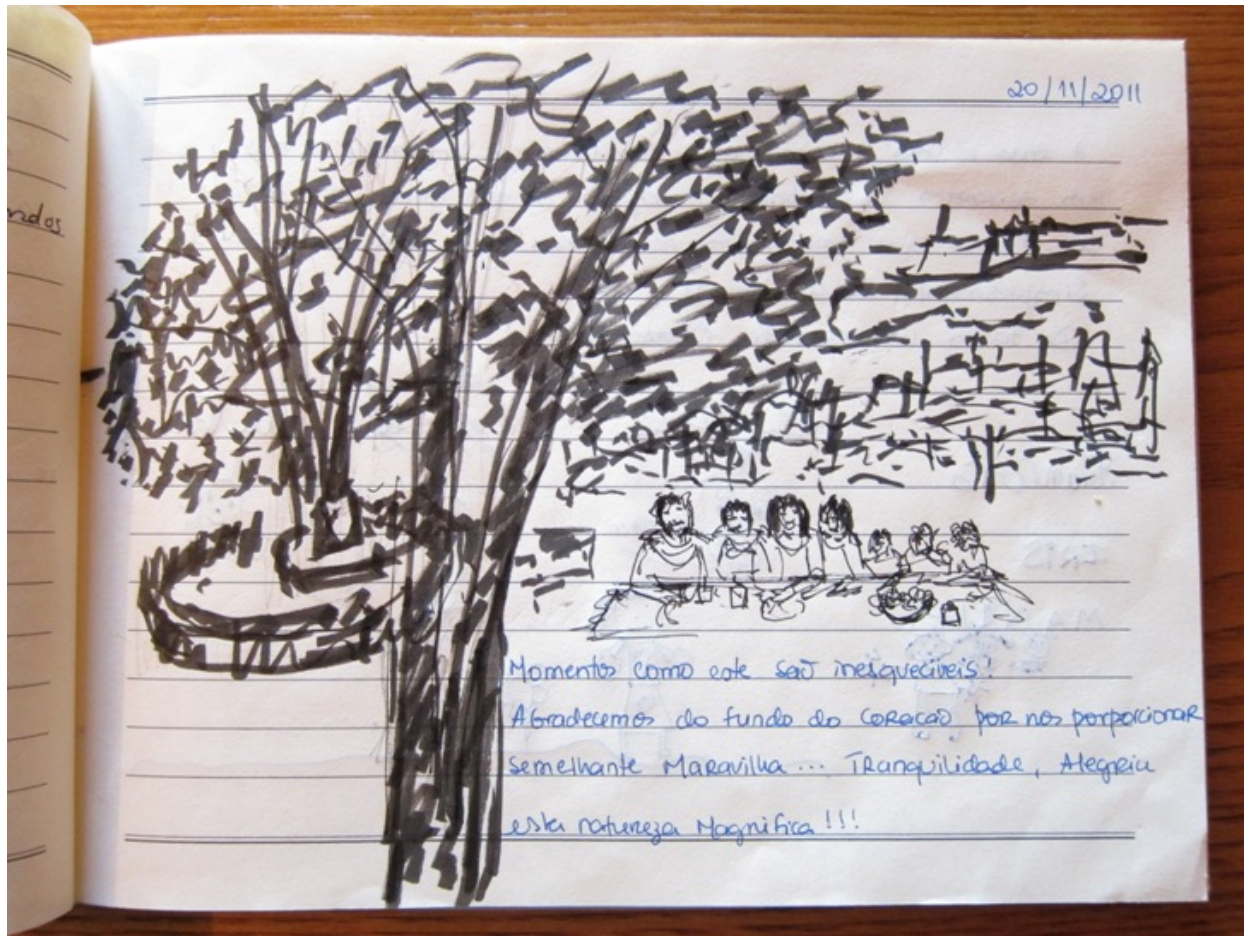 20/11/2011
Momentos como este são inesquecíveis!
Agradecemos do fundo do coração por nos porporcionar
semelhante Maravilha... Tranquilidade, Alegria
esta natureza Magnífica!!!